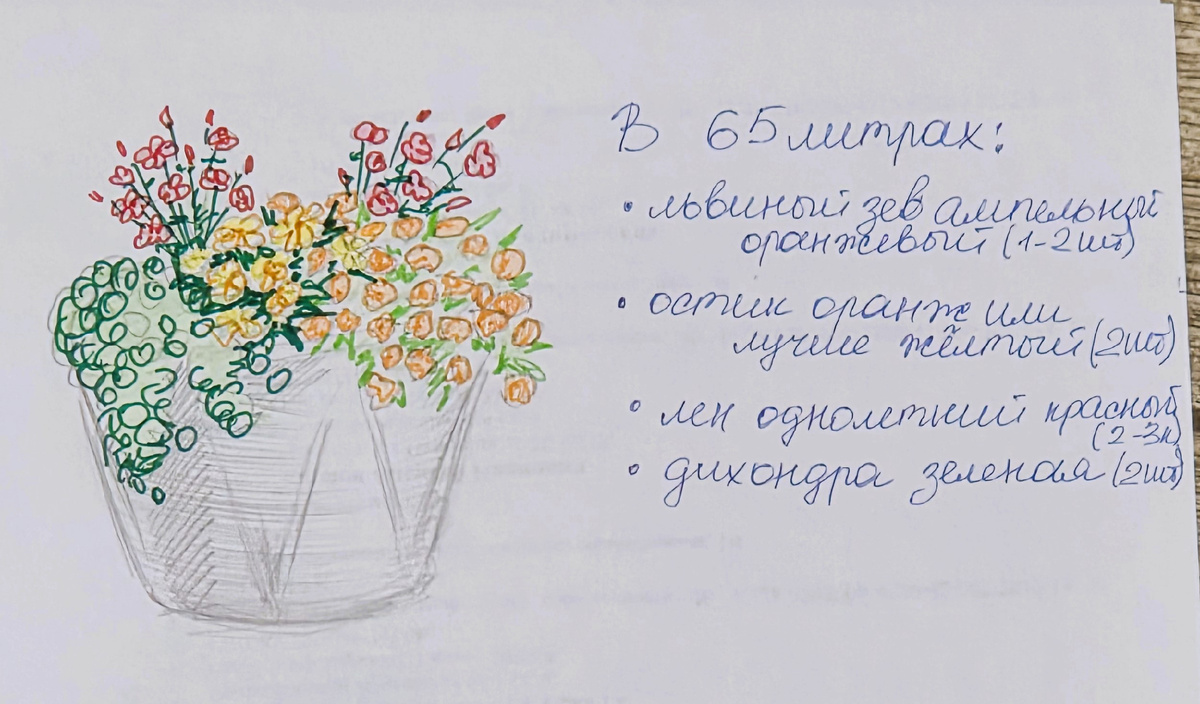 В 65 литрах:
• львиный зев ампельный
оранжевый (1-2 шт)
• остик оранж или
лучше жёлтый (2 шт)
• лен однолетний красный
(2-3к)
• дихондра зеленая (2 шт)